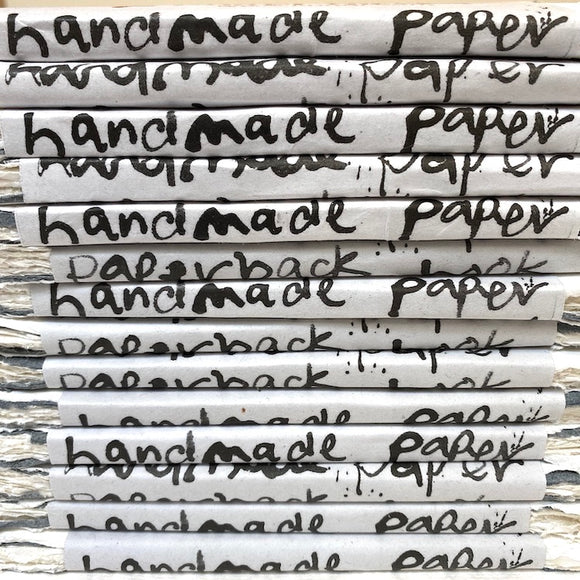 handmade paper
handmade paper
handmade paper
handmade paper
handmade paper
paperback book
handmade paper
paperback book
paperback book
handmade paper
handmade paper
handmade paper
paperback
handmade paper
handmade paper